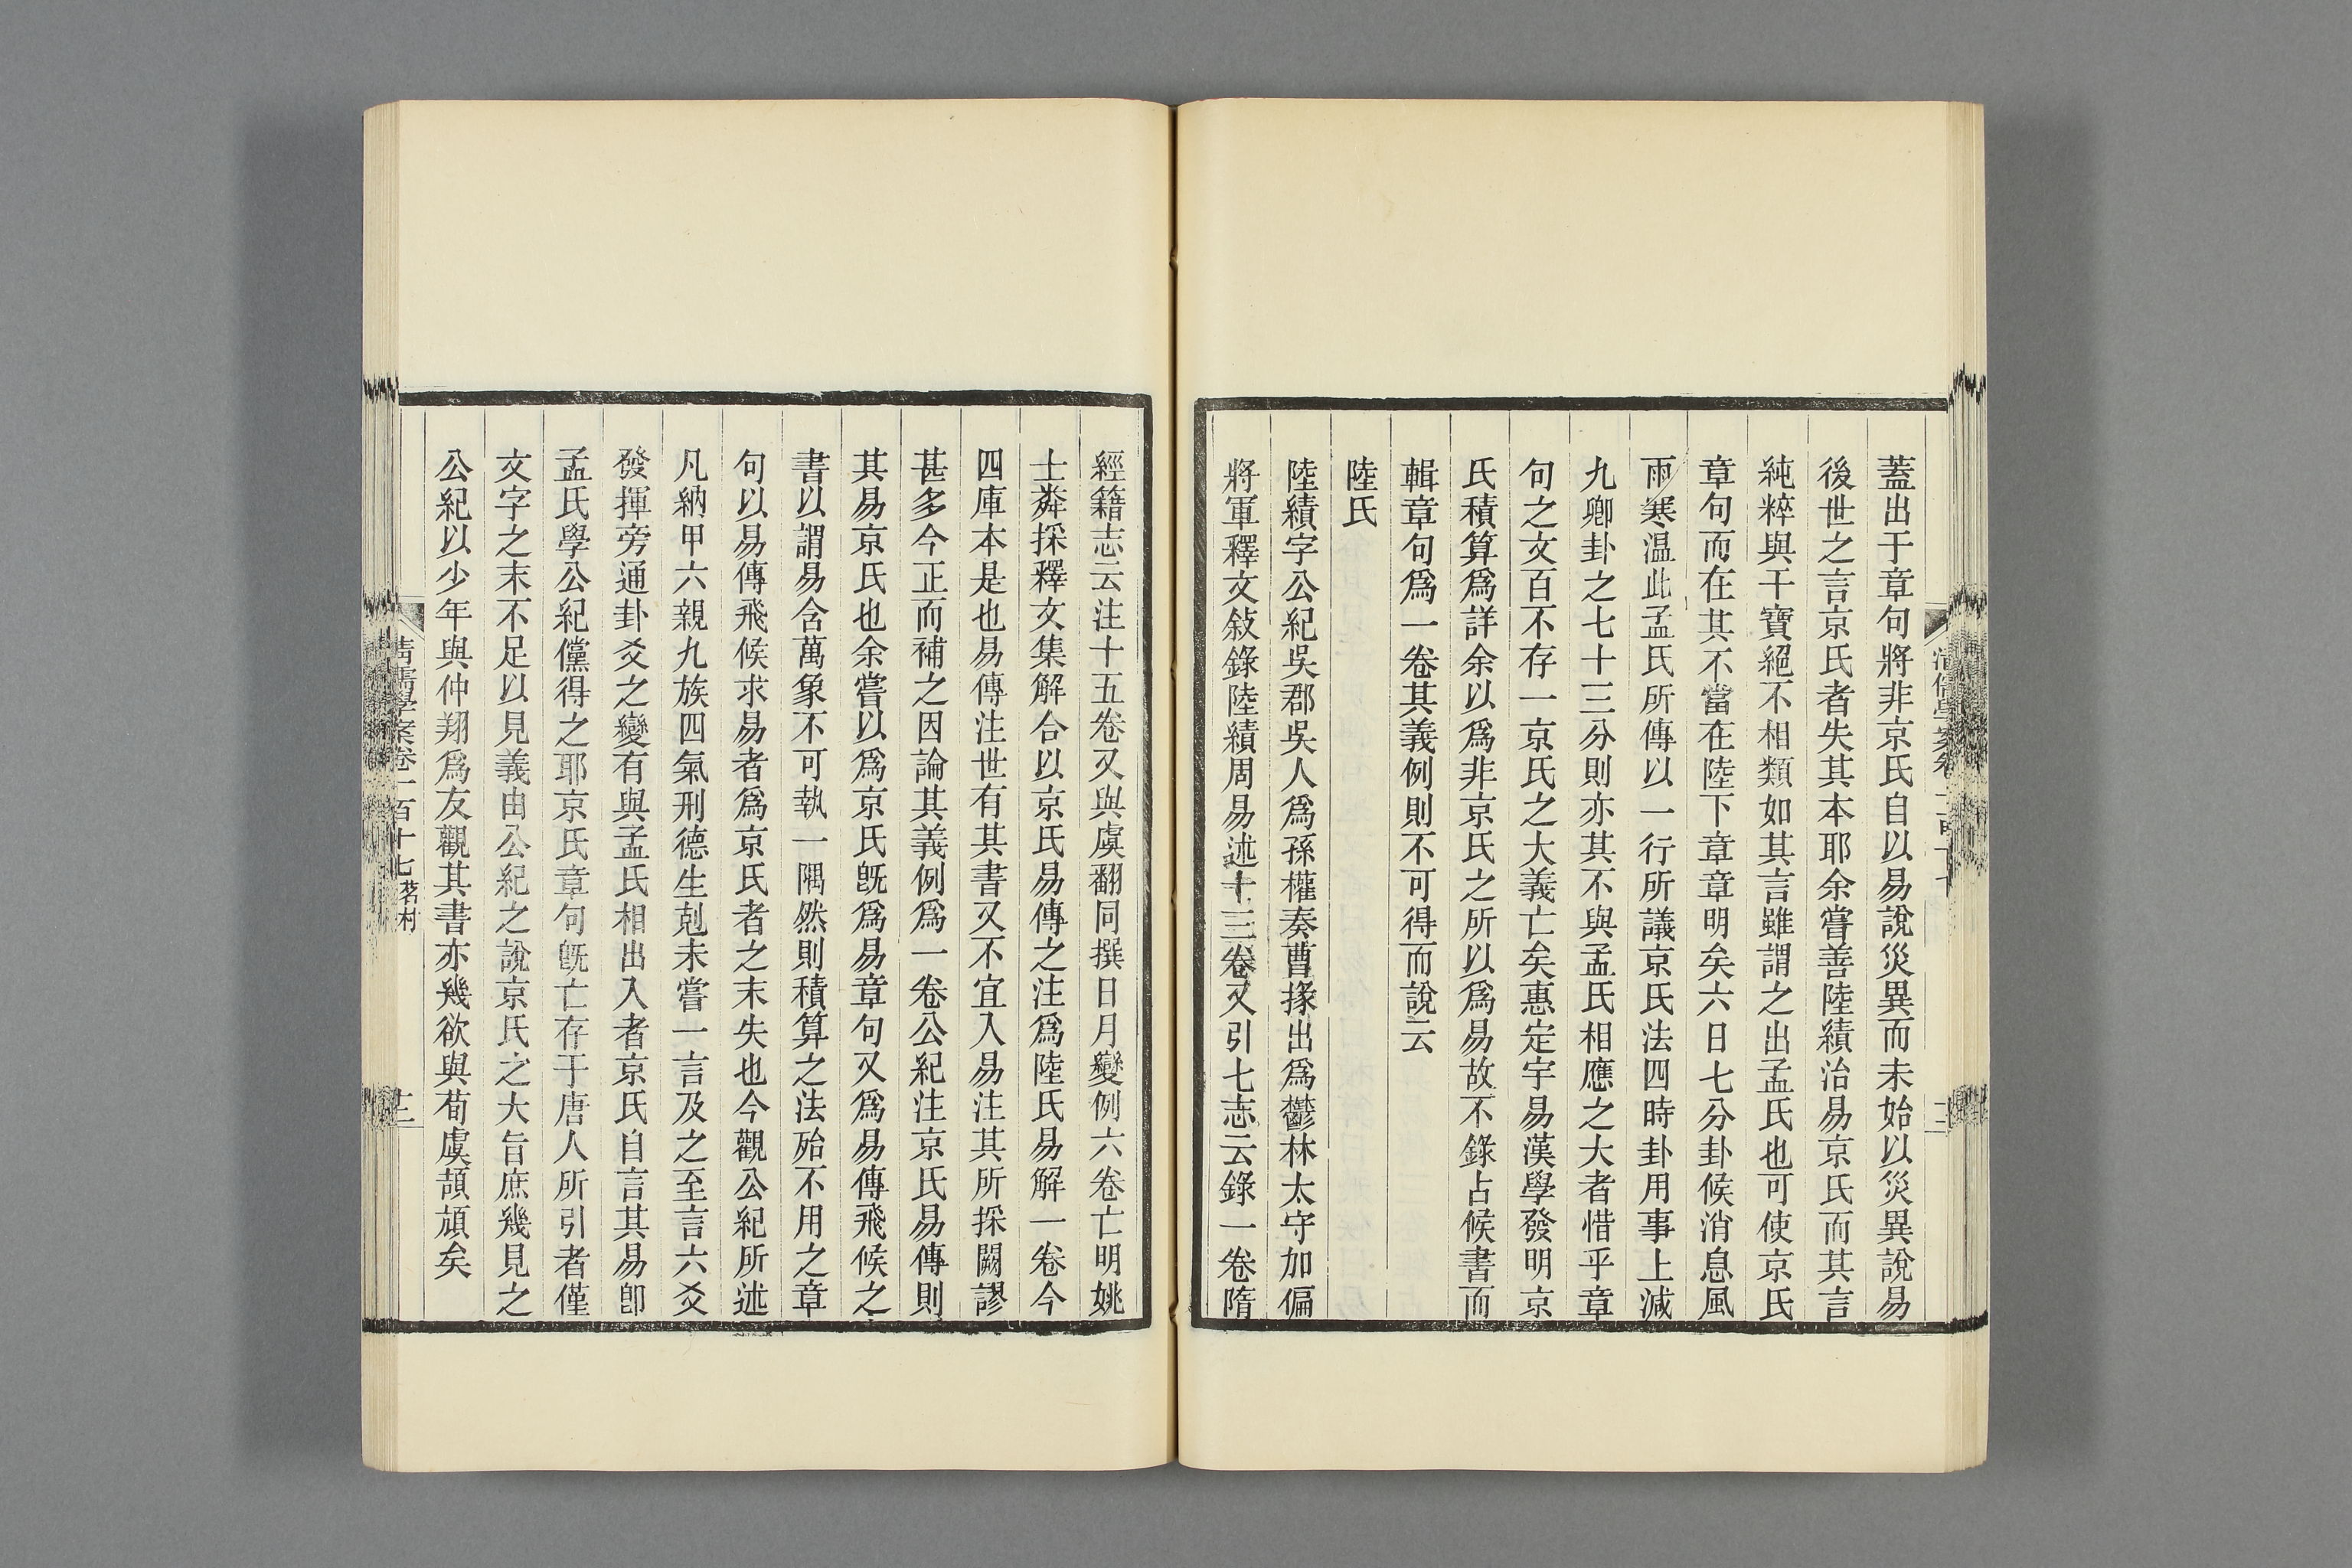 蓋出于章句將非京氏自以易說災異而未始以災異說易
後世之言京氏者失其本耶余嘗善陸績治易京氏而其言
純粹與干寶絕不相類如其言雖謂之出孟氏也可使京氏
章句而在其不當在陸下章章明矣六日七分卦候消息風
雨寒温此孟氏所傳以一行所議京氏法四時卦用事上減
九卿卦之七十三分則亦其不與孟氏相應之大者惜乎章
句之文百不存一京氏之大義亡矣惠定宇易漢學發明京
氏積算爲詳余以爲非京氏之所以爲易故不錄占候書而
輯章句爲一卷其義例則不可得而說云
陸氏
陸績字公紀吳郡吳人爲孫權奏曹掾出爲鬱林太守加偏
將軍釋文敍錄陸績周易述十三卷又引七志云錄一卷隋
經籍志云注十五卷又與虞翻同撰日月變例六卷亡明姚
士粦採釋文集解合以京氏易傳之注爲陸氏易解一卷今
四庫本是也易傳注世有其書又不宜入易注其所採闕謬
甚多今正而補之因論其義例爲一卷公紀注京氏易傳則
其易京氏也余嘗以爲京氏既爲易章句又爲易傳飛候之
書以謂易含萬象不可執一隅然則積算之法殆不用之章
句以易傳飛候求易者爲京氏者之末失也今觀公紀所述
凡納甲六親九族四氣刑德生剋未嘗一言及之至言六爻
發揮旁通卦爻之變有與孟氏相出入者京氏自言其易卽
孟氏學公紀儻得之耶京氏章句既亡存于唐人所引者僅
文字之末不足以見義由公紀之說京氏之大旨庶幾見之
公紀以少年與仲翔爲友觀其書亦幾欲與荀虞頡頏矣
清儒學案卷一百十七 茗柯
十二